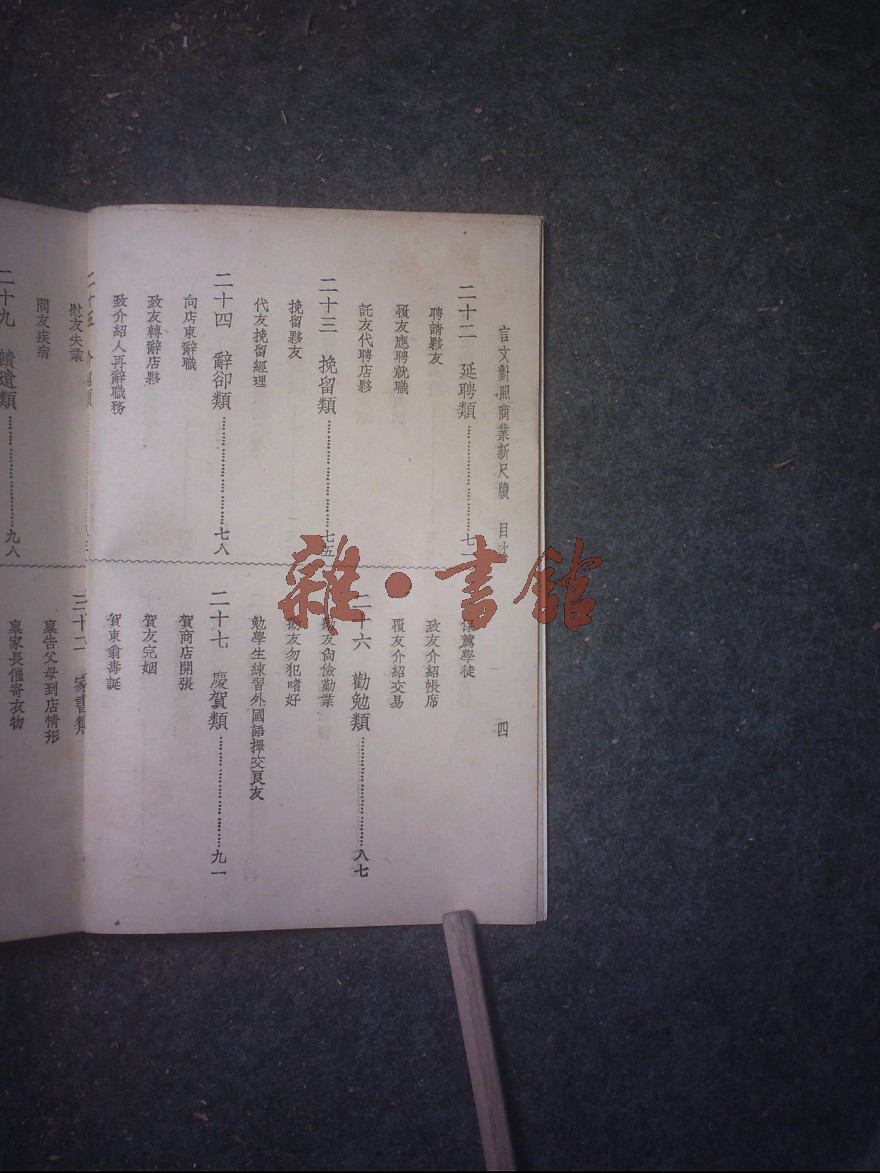 言文對照商業新尺牘 目次 四
二十二 延聘類
聘請夥友
覆友應聘就職
託友代聘店夥
二十三 挽留類 七五
挽留夥友
代友挽留經理
二十四 辭卻類 七八
向店東辭職
致友轉辭店夥
致介紹人再辭職務
保薦學徒
致友介紹帳席
覆友介紹交易
二十六 勸勉類 八七
友尙儉勤業
友勿犯嗜好
勉學生練習外國語擇交良友
二十七 慶賀類 九一
賀商店開張
賀友完姻
賀東翁壽誕
慰友失業
問友疾病
二十九 饋遺類 九八
三十二 家書類
稟告父母到店情形
稟家長催寄衣物
雜·書館